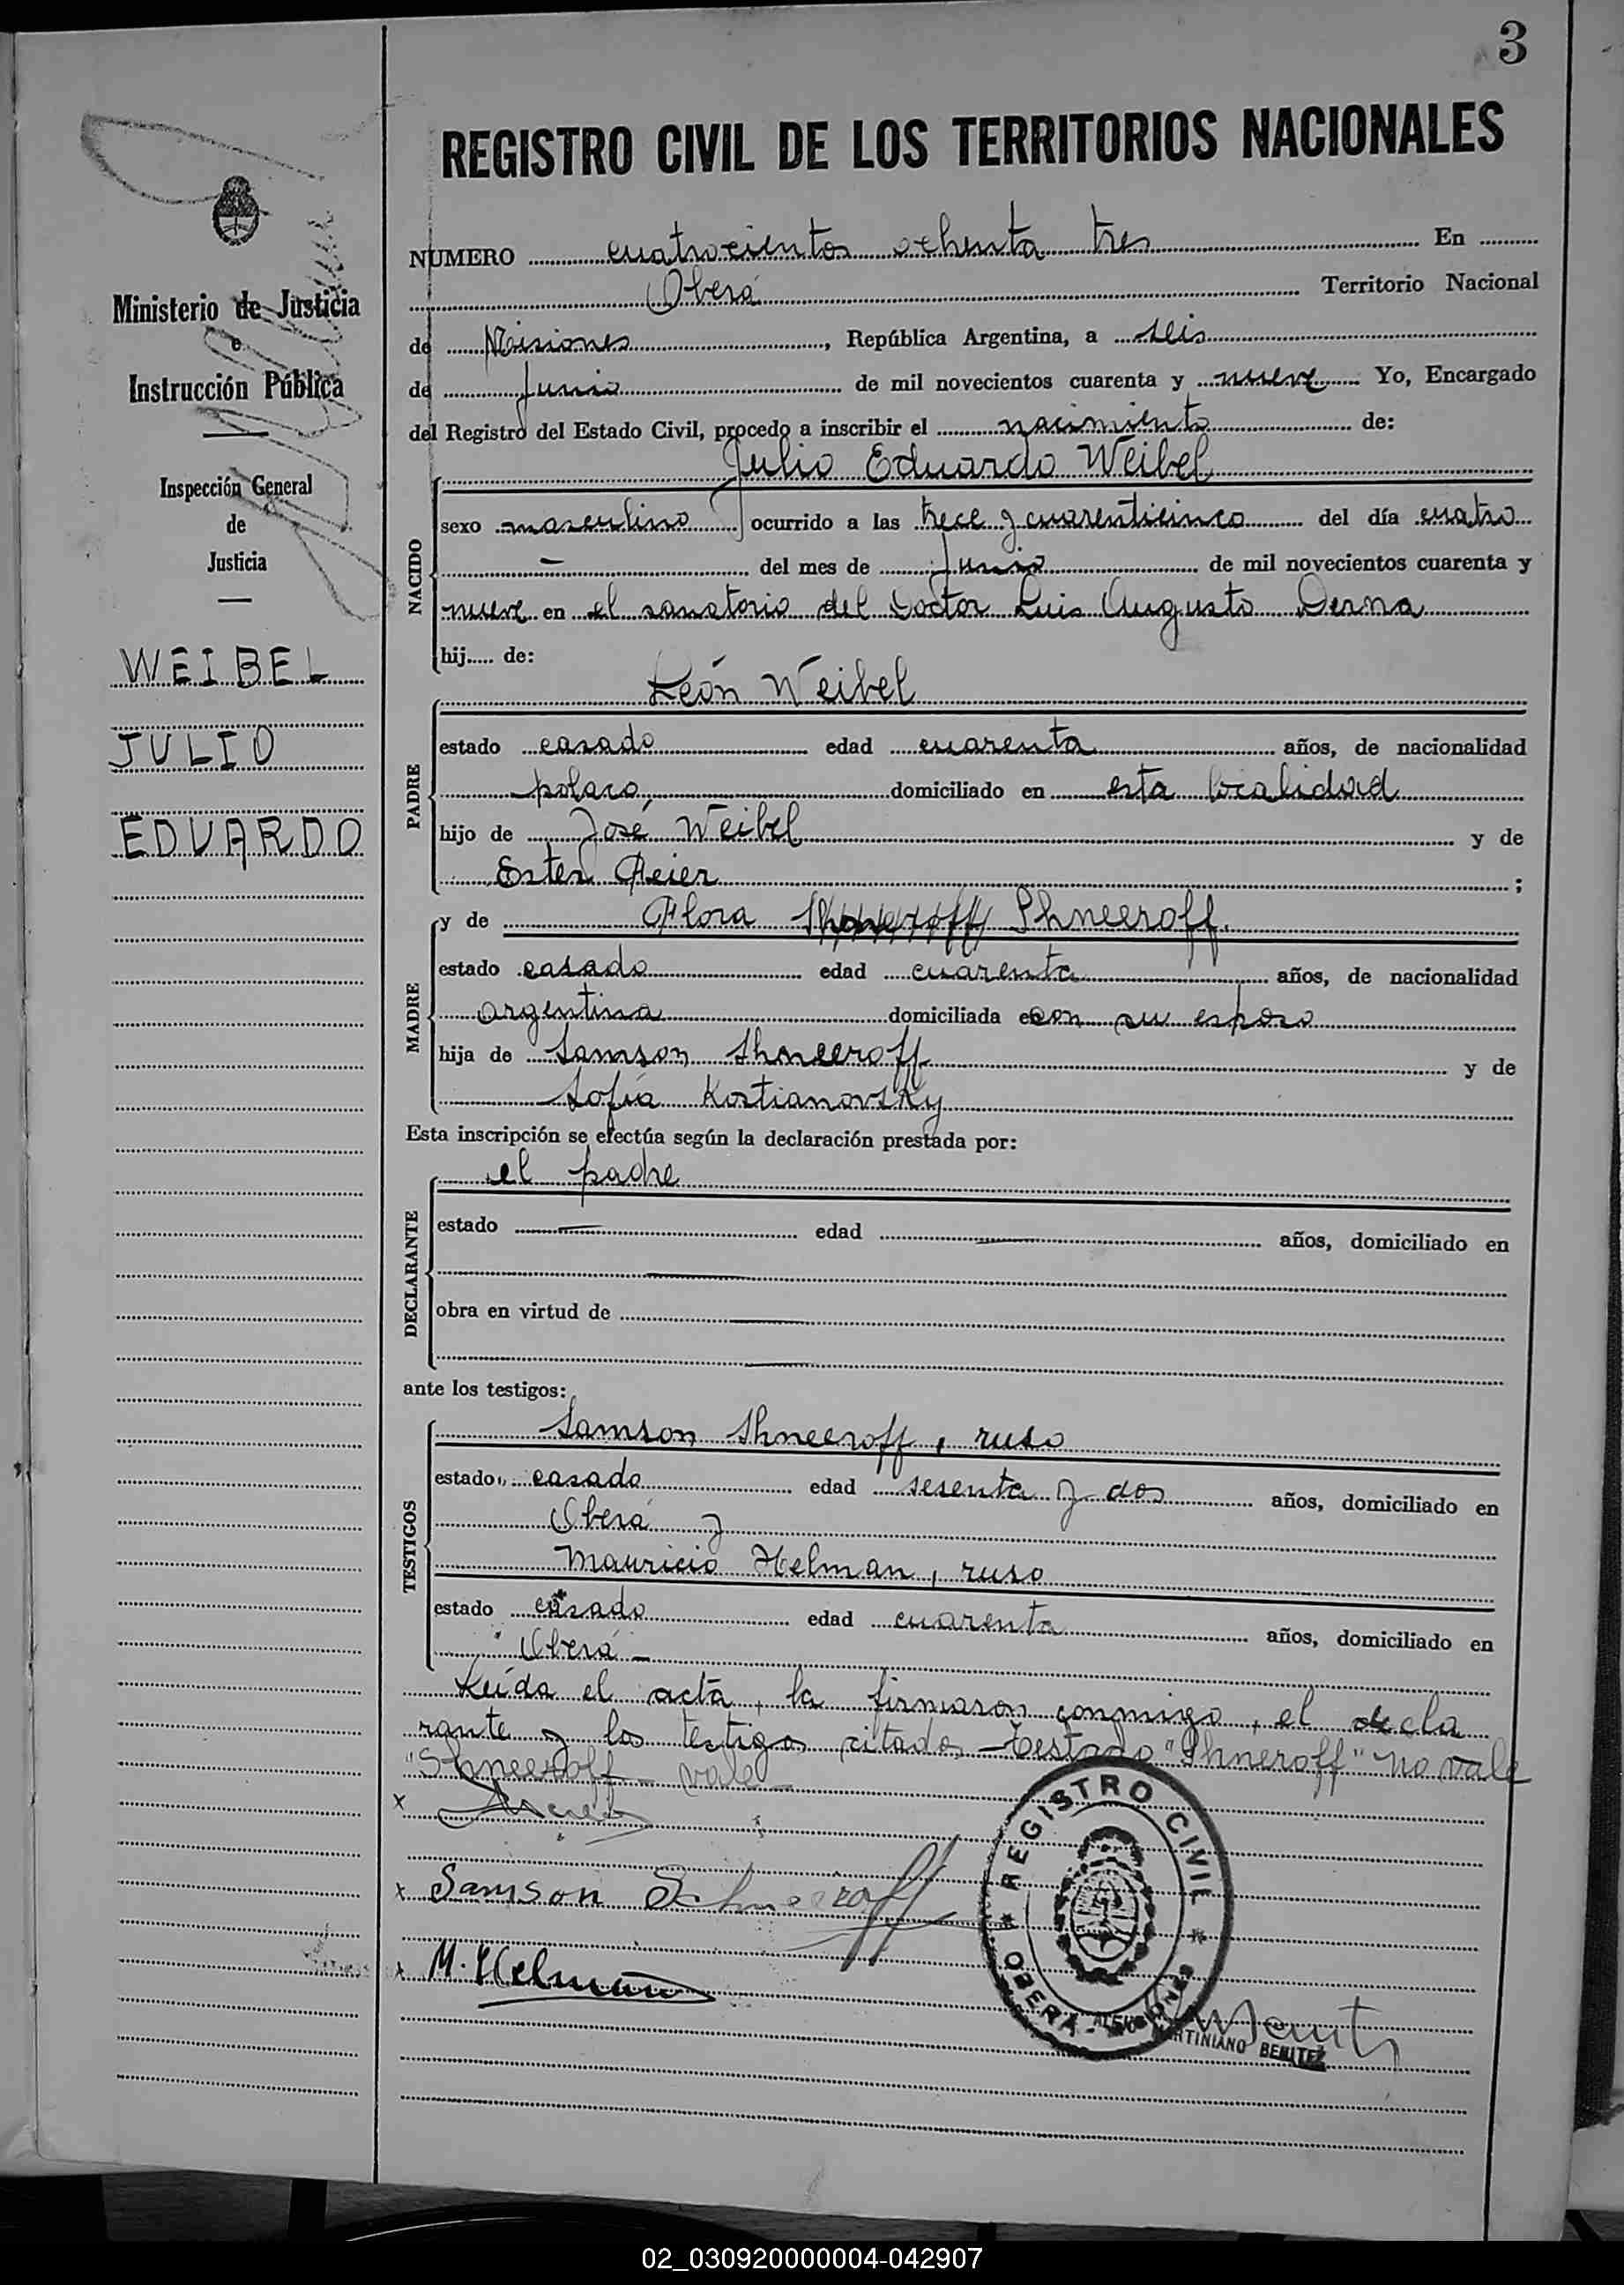 3
REGISTRO CIVIL DE LOS TERRITORIOS NACIONALES
Ministerio de Justicia
e
Instrucción Pública
Inspección General
de
Justicia
WEIBEL
JULIO
EDUARDO
NUMERO cuatrocientos ochenta tres En
Oberá Territorio Nacional
de Misiones, República Argentina, a seis
de Junio de mil novecientos cuarenta y nueve Yo, Encargado
del Registro del Estado Civil, procedo a inscribir el nacimiento de:
Julio Eduardo Weibel
NACIDO
sexo masculino ocurrido a las trece y cuarenticinco del día cuatro
— del mes de Junio de mil novecientos cuarenta y
nueve en el sanatorio del Doctor Luis Augusto Derna
hij..... de:
León Weibel
PADRE
estado casado edad cuarenta años, de nacionalidad
polaco, domiciliado en esta localidad
hijo de José Weibel y de
Ester Reier ;
y de Flora Shneeroff.
MADRE
estado casado edad cuarenta años, de nacionalidad
argentina domiciliada con su esposo
hija de Samson Shneeroff y de
Sofía Kostianovsky
Esta inscripción se efectúa según la declaración prestada por:
el padre
DECLARANTE
estado — edad — años, domiciliado en
—
obra en virtud de —
—
ante los testigos:
Samson Shneeroff, ruso
TESTIGOS
estado casado edad sesenta y dos años, domiciliado en
Oberá y
Mauricio Helman, ruso
estado casado edad cuarenta años, domiciliado en
Oberá —
Leída el acta, la firmaron conmigo, el decla
rante y los testigos citados — Testado "Shneroff" no vale
"Shneeroff — vale —
x
x Samson Schneeroff
x M. Helman
REGISTRO CIVIL
OBERÁ - MISIONES
MARTINIANO BENITEZ
02_030920000004-042907